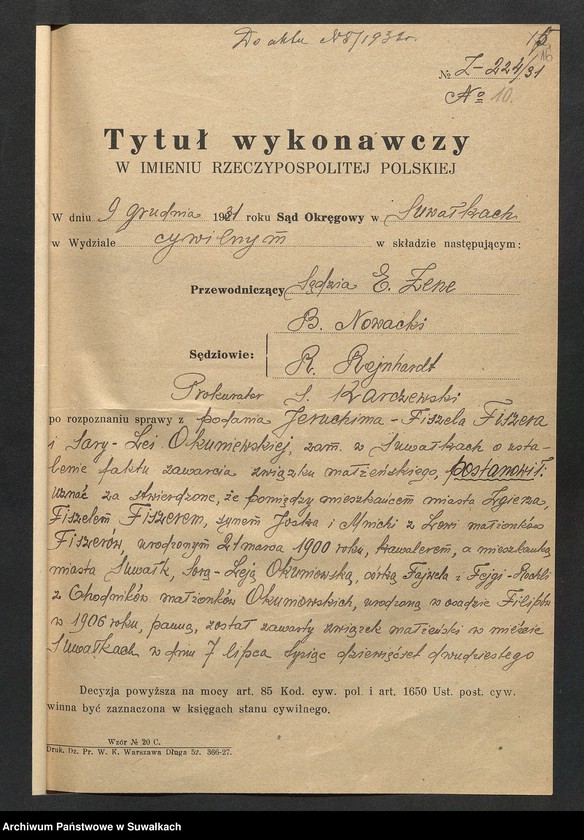 Do aktu № 8/1932r.
15
№ Z-224/31
№ 10.
Tytuł wykonawczy
W IMIENIU RZECZYPOSPOLITEJ POLSKIEJ
W dniu 9 grudnia 1931 roku Sąd Okręgowy w Suwałkach
w Wydziale cywilnym w składzie następującym:
Przewodniczący Sędzia E. Zene
B. Nowacki
Sędziowie:
R. Rejnhardt
Prokurator S. Karczewski
po rozpoznaniu sprawy z podania Jeruchima-Fiszela Fiszera
i Sary-Lei Okuniewskiej, zam. w Suwałkach o usta-
lenie faktu zawarcia związku małżeńskiego, postanowił:
uznać za stwierdzone, że pomiędzy mieszkańcem miasta Zgierza,
Fiszelem Fiszerem, synem Joska i Mnichi z Lewi małżonków
Fiszerów, urodzonym 21 marca 1900 roku, kawalerem, a mieszkanką
miasta Suwałk, Sorą-Leją Okuniowską, córką Fajwela i Fejgi-Rochli
z Chodników małżonków Okuniowskich, urodzoną w osadzie Filipów
w 1906 roku, panną, został zawarty związek małżeński w mieście
Suwałkach w dniu 7 lipca tysiąc dziewięćset dwudziestego
Decyzja powyższa na mocy art. 85 Kod. cyw. pol. i art. 1650 Ust. post. cyw.
winna być zaznaczona w księgach stanu cywilnego.
Wzór № 20 C.
Druk. Dz. Pr. W. K. Warszawa Długa 52. 366-27.
Archiwum Państwowe w Suwałkach